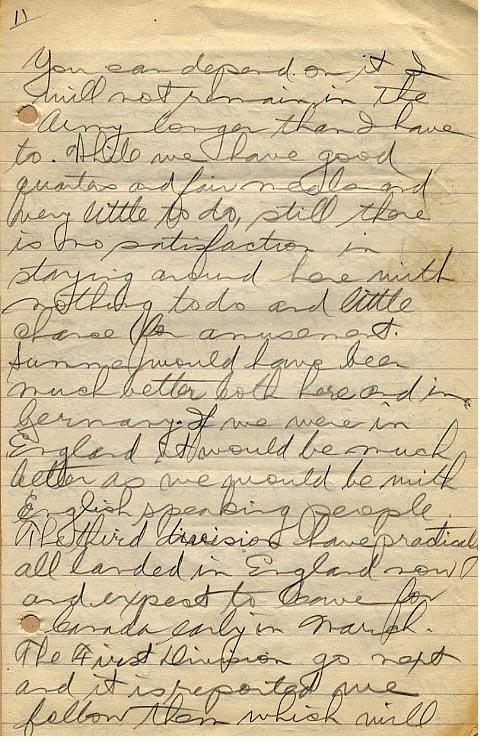 11
You can depend on it I
will not remain in the
Army longer than I have
to. While we have good
quarters and fair meals and
very little to do, still there
is no satisfaction in
staying around here with
nothing to do and little
chance for amusement.
Summer would have been
much better both here and in
Germany. If we were in
England it would be much
better as we would be with
English speaking people.
The third division have practically
all landed in England now
and expect to leave for
Canada early in March.
The First Division go next
and it is reported we
follow them which will